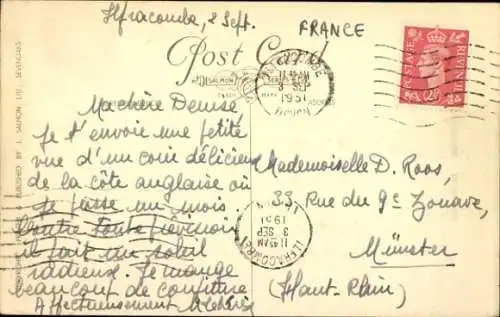 Ilfracombe, 2 Sept.
FRANCE
Post Card
SALMON
ILFRACOMBE
11 45 AM
3 SEP
1951
DEVON
POSTAGE
REVENUE
2½D
ADDRESS
PUBLISHED BY J. SALMON LTD., SEVENOAKS
Ma chère Denise,
Je t'envoie une petite
vue d'un coin délicieux
de la côte anglaise où
je passe un mois.
Contre toute prévision
il fait un soleil
radieux. Je mange
beaucoup de confiture
Affectueusement
Mademoiselle D. Roos,
33 Rue du 9e Zouave,
Münster
(Haut-Rhin)
ILFRACOMBE
11 45 AM
3 SEP
1951